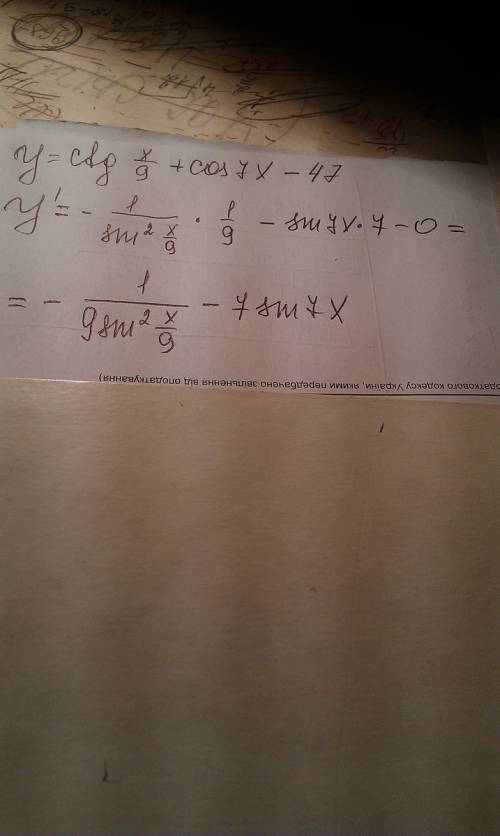 y = ctg x/9 + cos 7x − 47
y' = − 1/sin² x/9 · 1/9 − sin 7x · 7 − 0 =
= − 1/9sin² x/9 − 7 sin 7x
одаткового кодексу України, якими передбачено звільнення від оподаткування)